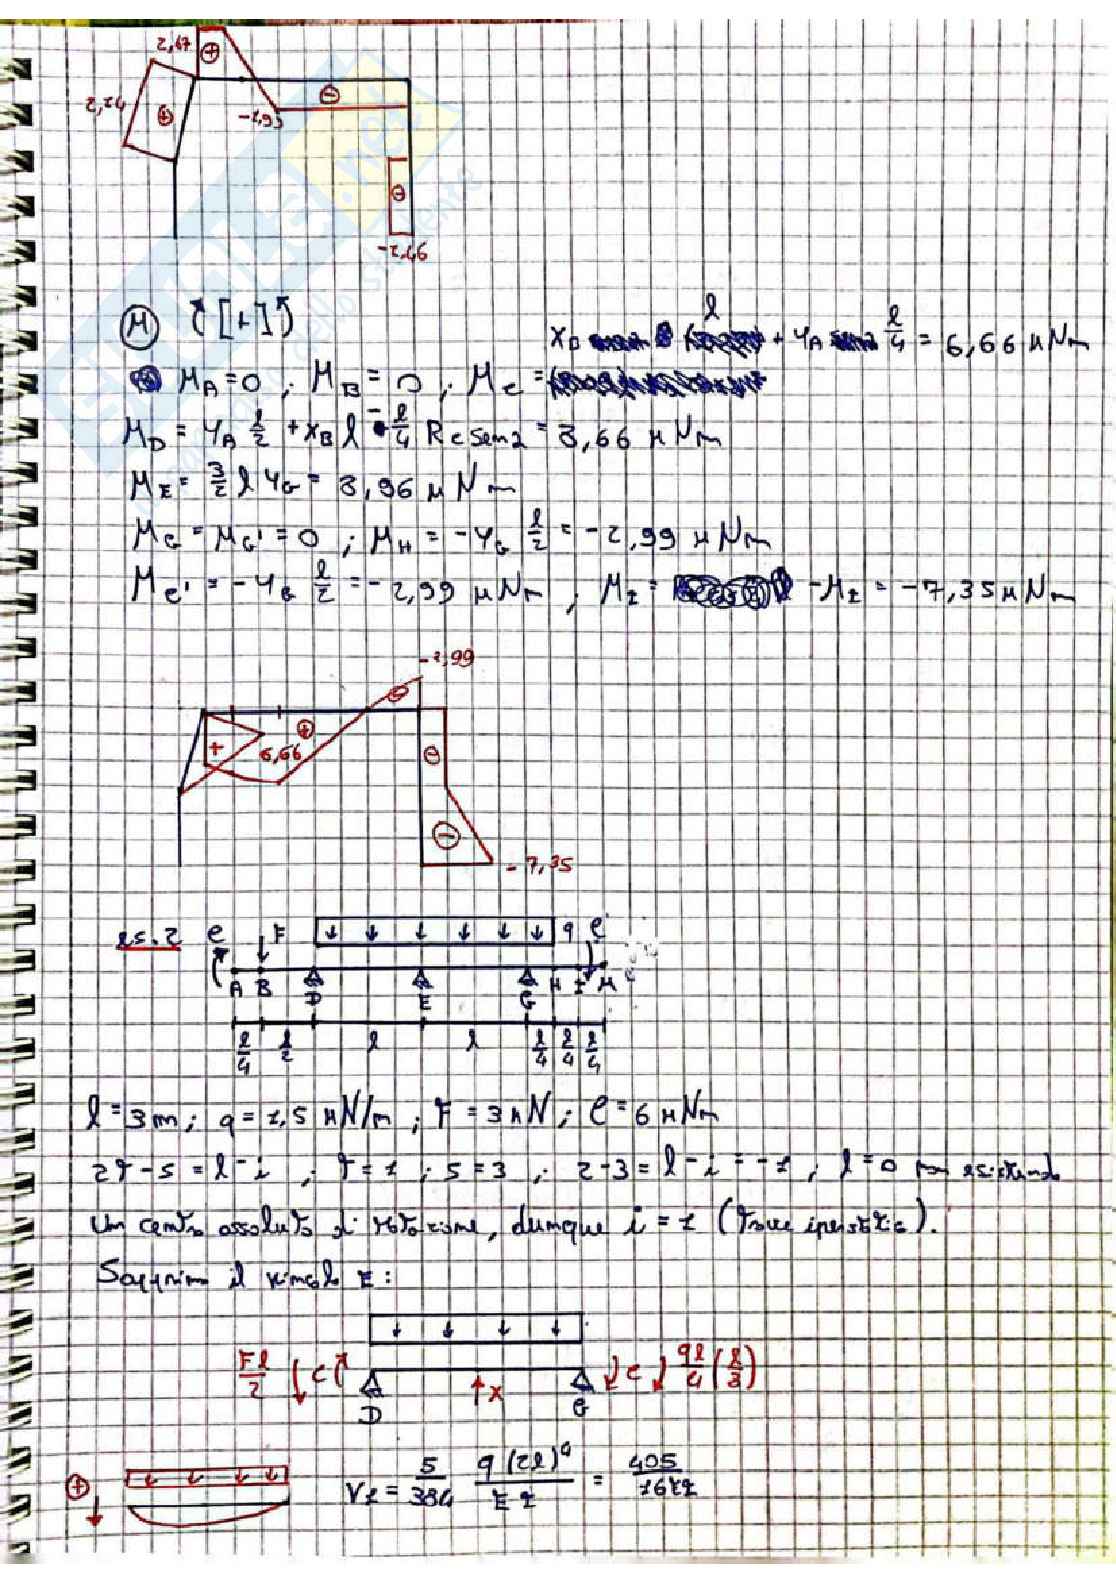 2,67
⊕
⊖
2,24
⊕
-2,99
⊖
-2,46
(M) ([+])
X_B l + Y_A l/4 = 6,66 kNm
M_A = 0 ; M_B = 0 ; M_C =
M_D = Y_A l/2 + X_B l - l/4 R_C sen2 = 3,66 kNm
M_E = 3/2 l Y_G = 3,96 kNm
M_G = M_G' = 0 ; M_H = -Y_G l/2 = -2,99 kNm
M_E' = -Y_G l/2 = -2,99 kNm , M_I = -M_I = -7,35 kNm
-2,99
⊖
+
⊕
6,66
⊖
⊖
-7,35
es.2 C F q C
A B D E G H I M
l/4 l/2 l l l/4 l/4 l/4
l = 3m ; q = 1,5 kN/m ; F = 3kN ; C = 6 kNm
2T-5 = l-i ; T = 1 ; S = 3 ; 2-3 = l-i = -1 ; l = 0 non esistendo
un centro assoluto di rotazione, dunque i = 1 (trave iperstatica).
Sopprimo il vincolo E :
Fl/2 C X C ql/4 (l/8)
D G
⊕ V1 = 5/384 q(2l)^4/EI = 405/16EI